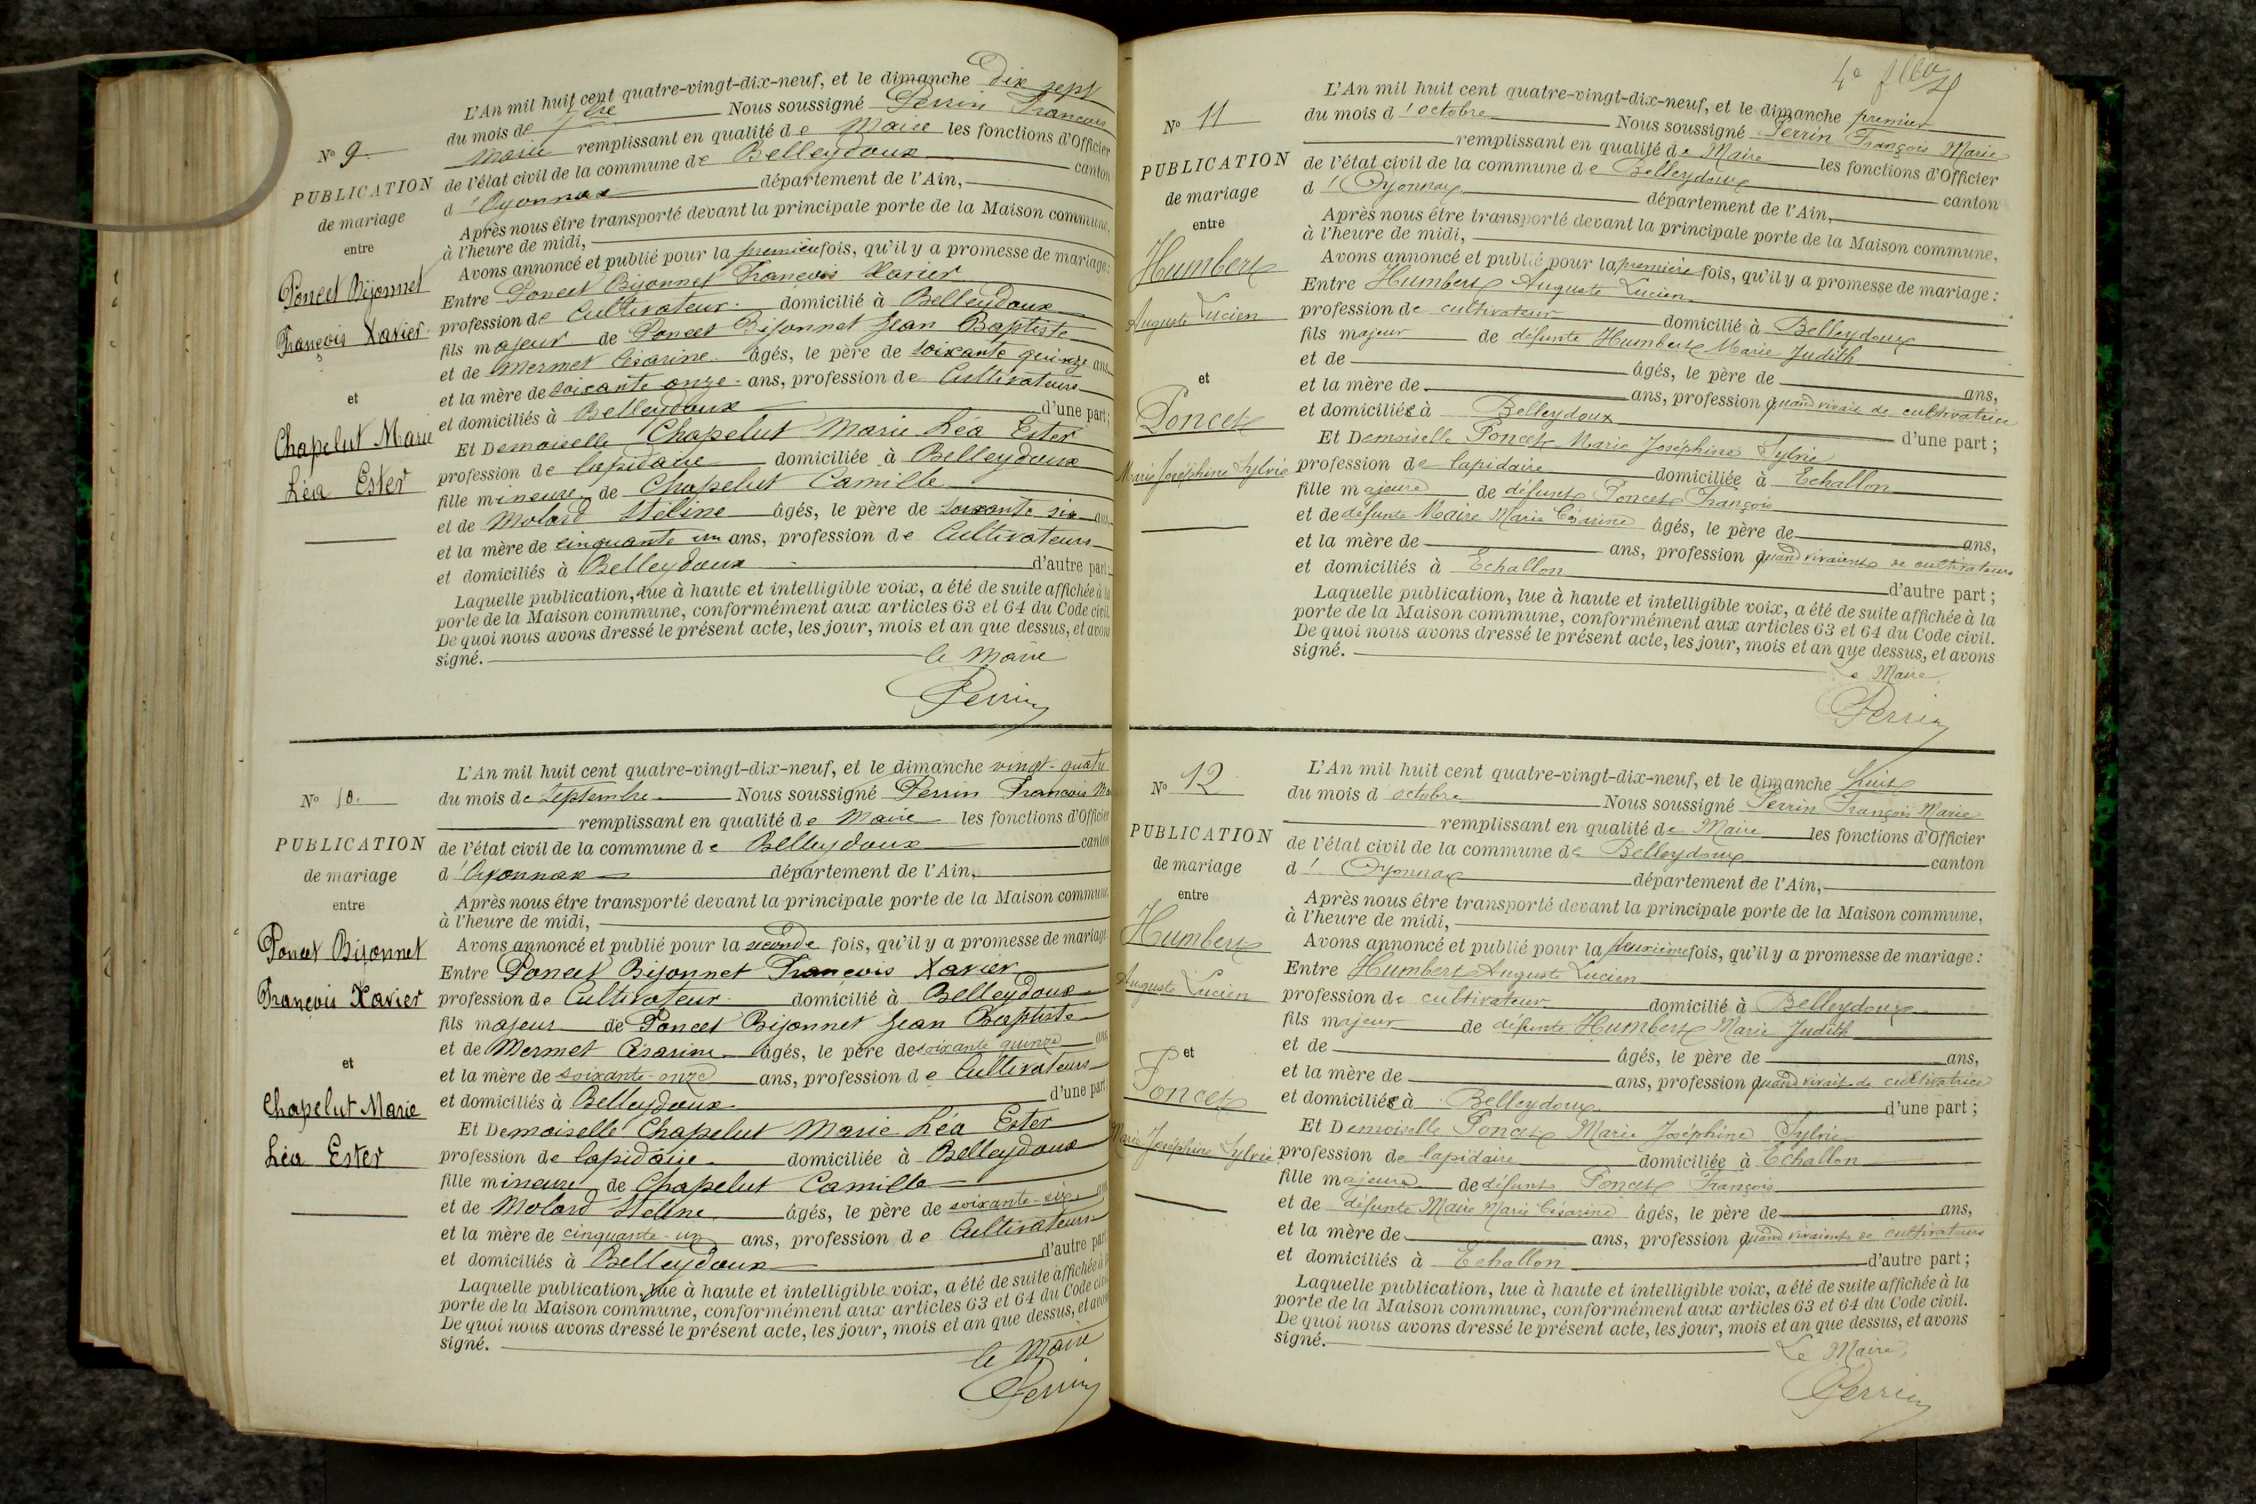 L'An mil huit cent quatre-vingt-dix-neuf, et le dimanche Dix sept
du mois de 7bre Nous soussigné Perrin François
Marie remplissant en qualité de Maire les fonctions d'Officier
de l'état civil de la commune de Belleydoux canton
d'Oyonnax département de l'Ain,
Après nous être transporté devant la principale porte de la Maison commune,
à l'heure de midi,
Avons annoncé et publié pour la première fois, qu'il y a promesse de mariage:
Entre Poncet Bijonnet François Xavier
profession de Cultivateur domicilié à Belleydoux
fils majeur de Poncet Bijonnet Jean Baptiste
et de Mermet Césarine âgés, le père de soixante quinze ans
et la mère de soixante onze ans, profession de Cultivateurs
et domiciliés à Belleydoux d'une part;
Et Demoiselle Chapelut Marie Léa Ester
profession de lapidaire domiciliée à Belleydoux
fille mineure de Chapelut Camille
et de Molard Stéline âgés, le père de soixante six ans
et la mère de cinquante un ans, profession de Cultivateurs
et domiciliés à Belleydoux d'autre part;
Laquelle publication, lue à haute et intelligible voix, a été de suite affichée à la
porte de la Maison commune, conformément aux articles 63 et 64 du Code civil.
De quoi nous avons dressé le présent acte, les jour, mois et an que dessus, et avons
signé. le Maire
Perrin
N° 9.
PUBLICATION
de mariage
entre
Poncet Bijonnet
François Xavier
et
Chapelut Marie
Léa Ester
L'An mil huit cent quatre-vingt-dix-neuf, et le dimanche vingt-quatre
du mois de septembre Nous soussigné Perrin François Ma
remplissant en qualité de Maire les fonctions d'Officier
de l'état civil de la commune de Belleydoux canton
d'Oyonnax département de l'Ain,
Après nous être transporté devant la principale porte de la Maison commune,
à l'heure de midi,
Avons annoncé et publié pour la seconde fois, qu'il y a promesse de mariage
Entre Poncet Bijonnet François Xavier
profession de Cultivateur domicilié à Belleydoux
fils majeur de Poncet Bijonnet Jean Baptiste
et de Mermet Césarine âgés, le père de soixante quinze ans
et la mère de soixante-onze ans, profession de Cultivateurs
et domiciliés à Belleydoux d'une part
Et Demoiselle Chapelut Marie Léa Ester
profession de lapidaire domiciliée à Belleydoux
fille mineure de Chapelut Camille
et de Molard Stéline âgés, le père de soixante-six ans
et la mère de cinquante-un ans, profession de Cultivateurs
et domiciliés à Belleydoux d'autre part
Laquelle publication, lue à haute et intelligible voix, a été de suite affichée à la
porte de la Maison commune, conformément aux articles 63 et 64 du Code civil
De quoi nous avons dressé le présent acte, les jour, mois et an que dessus, et avons
signé. le Maire
Perrin
N° 10.
PUBLICATION
de mariage
entre
Poncet Bijonnet
François Xavier
et
Chapelut Marie
Léa Ester
L'An mil huit cent quatre-vingt-dix-neuf, et le dimanche premier
du mois d'octobre Nous soussigné Perrin François Marie
remplissant en qualité de Maire les fonctions d'Officier
de l'état civil de la commune de Belleydoux canton
d'Oyonnax département de l'Ain,
Après nous être transporté devant la principale porte de la Maison commune,
à l'heure de midi,
Avons annoncé et publié pour la première fois, qu'il y a promesse de mariage:
Entre Humbert Auguste Lucien
profession de cultivateur domicilié à Belleydoux
fils majeur de défunte Humbert Marie Judith
et de âgés, le père de ans,
et la mère de ans, profession quand vivait de cultivatrice
et domiciliée à Belleydoux d'une part;
Et Demoiselle Poncet Marie Joséphine Sylvie
profession de lapidaire domiciliée à Echallon
fille majeure de défunt Poncet François
et de défunte Maire Marie Césarine âgés, le père de ans,
et la mère de ans, profession quand vivaient de cultivateurs
et domiciliés à Echallon d'autre part;
Laquelle publication, lue à haute et intelligible voix, a été de suite affichée à la
porte de la Maison commune, conformément aux articles 63 et 64 du Code civil.
De quoi nous avons dressé le présent acte, les jour, mois et an que dessus, et avons
signé. Le Maire
Perrin
N° 11
PUBLICATION
de mariage
entre
Humbert
Auguste Lucien
et
Poncet
Marie Joséphine Sylvie
L'An mil huit cent quatre-vingt-dix-neuf, et le dimanche huit
du mois d'octobre Nous soussigné Perrin François Marie
remplissant en qualité de Maire les fonctions d'Officier
de l'état civil de la commune de Belleydoux canton
d'Oyonnax département de l'Ain,
Après nous être transporté devant la principale porte de la Maison commune,
à l'heure de midi,
Avons annoncé et publié pour la deuxième fois, qu'il y a promesse de mariage:
Entre Humbert Auguste Lucien
profession de cultivateur domicilié à Belleydoux
fils majeur de défunte Humbert Marie Judith
et de âgés, le père de ans,
et la mère de ans, profession quand vivait de cultivatrice
et domiciliée à Belleydoux d'une part;
Et Demoiselle Poncet Marie Joséphine Sylvie
profession de lapidaire domiciliée à Echallon
fille majeure de défunt Poncet François
et de défunte Maire Marie Césarine âgés, le père de ans,
et la mère de ans, profession quand vivaient de cultivateurs
et domiciliés à Echallon d'autre part;
Laquelle publication, lue à haute et intelligible voix, a été de suite affichée à la
porte de la Maison commune, conformément aux articles 63 et 64 du Code civil.
De quoi nous avons dressé le présent acte, les jour, mois et an que dessus, et avons
signé. Le Maire
Perrin
N° 12
PUBLICATION
de mariage
entre
Humbert
Auguste Lucien
et
Poncet
Marie Joséphine Sylvie